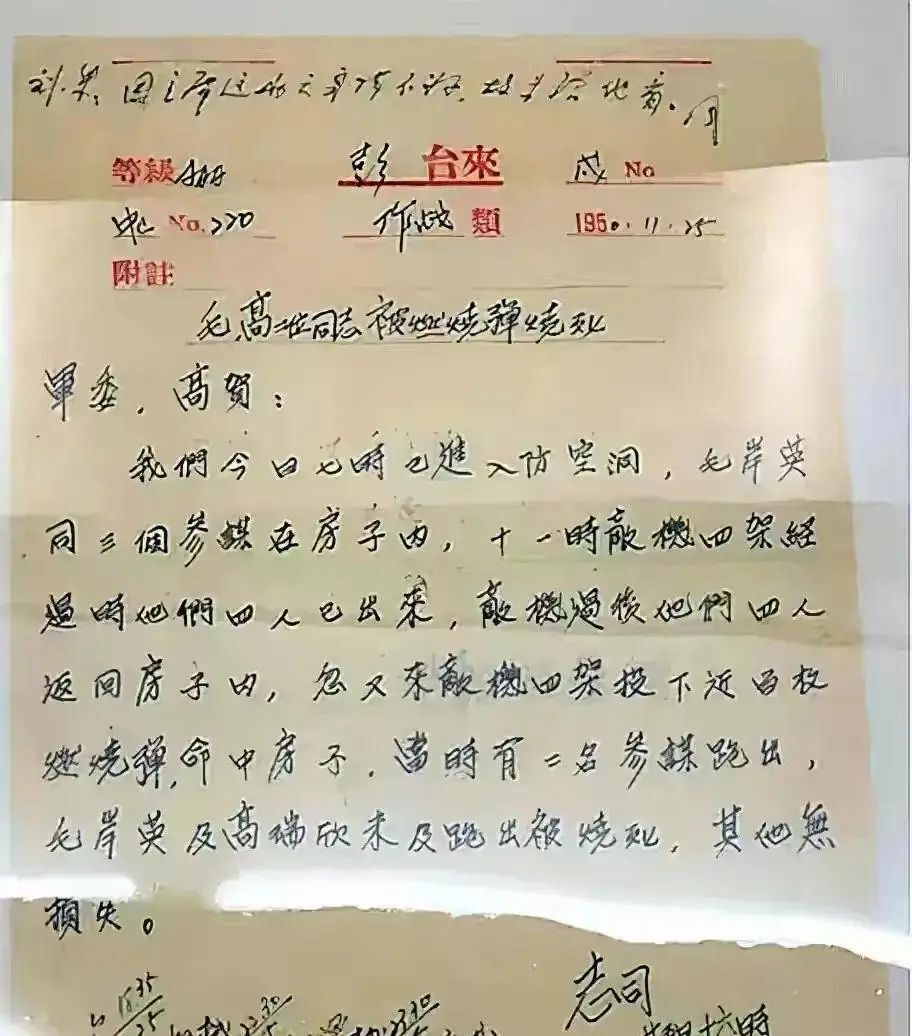 等級 AAAA 彭 台來 戍 No
中 No. 220 作戰 類 1950.11.25
附註
毛,高二位同志被燃燒彈燒死
軍委,高賀:
我們今日七時已進入防空洞,毛岸英
同三個參謀在房子內,十一時敵機四架經
過時他們四人已出來,敵機過後他們四人
返回房子內,忽又來敵機四架投下近百枚
燃燒彈,命中房子,當時有二名參謀跑出,
毛岸英及高瑞欣未及跑出被燒死,其他無
損失。
志司